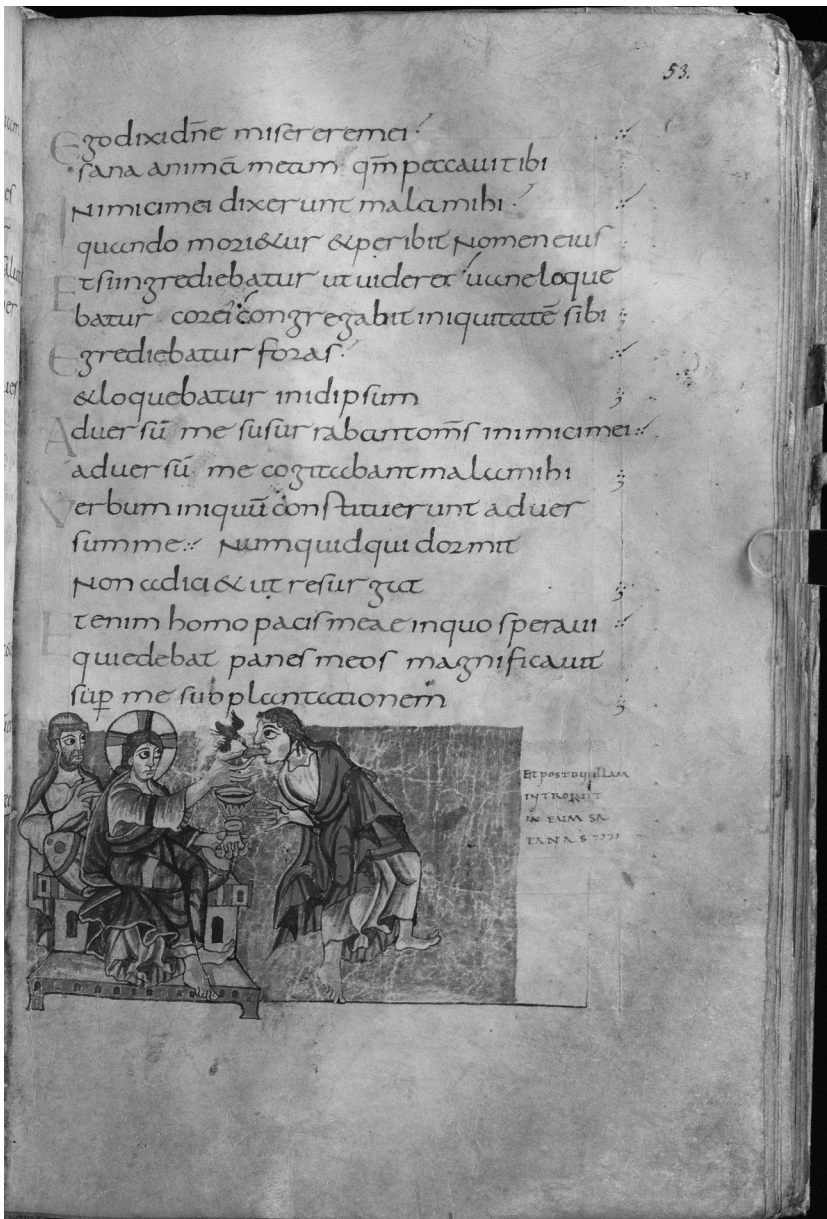 53.
Ego dixi dñe miserere mei
sana animā meam qm̄ peccavi tibi
Inimici mei dixerunt mala mihi
quando mori&ur &peribit nomen eius
Et si ingrediebatur ut videret vane loque
batur cor ei congregabit iniquitatē sibi
Egrediebatur foras
&loquebatur in idipsum
Adversū me susurrabant om̄s inimici mei
adversū me cogitabant mala mihi
Verbum iniquū constituerunt adver
sum me Numquid qui dormit
Non adici&ut resurgat
Etenim homo pacis meae in quo speravi
qui edebat panes meos magnificavit
sup̄ me subplantationem
ET POST BUCELLAM
INTROIVIT
IN EUM SA
TANAS